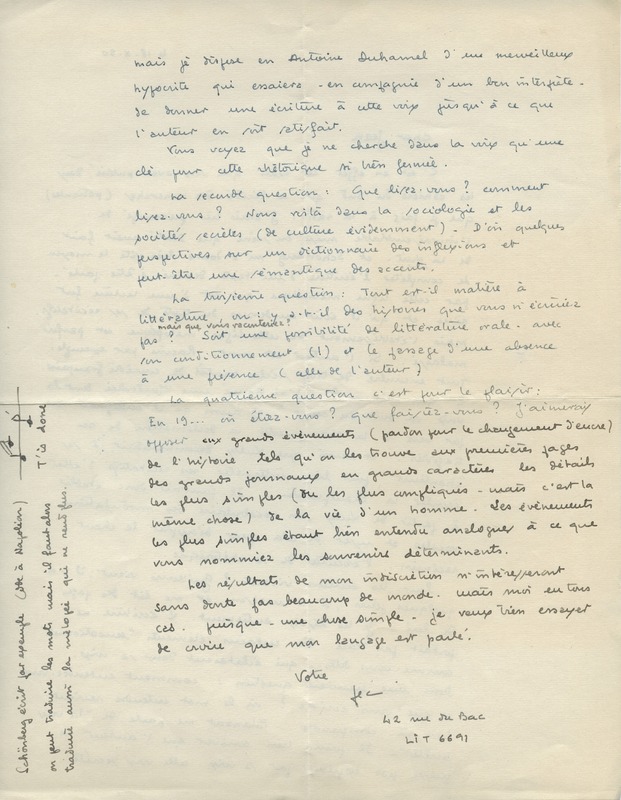 mais je dispose en Antoine Duhamel d'un merveilleux
hypocrite qui essaiera - en compagnie d'un bon interprète -
de donner une écriture à cette voix jusqu'à ce que
l'auteur en soit satisfait.
Vous voyez que je ne cherche dans la voix qu'une
clé pour cette rhétorique si bien fermée.
La seconde question : Que lisez-vous ? comment
lisez-vous ? Nous voilà dans la sociologie et les
sociétés secrètes (de culture évidemment). D'où quelques
perspectives sur un dictionnaire des inflexions et
peut-être une sémantique des accents.
La troisième question : Tout est-il matière à
littérature ou : y a-t-il des histoires que vous n'écririez
mais que vous raconteriez ?
pas ? Soit une possibilité de littérature orale - avec
son conditionnement (!) et le passage d'une absence
à une présence (celle de l'auteur)
La quatrième question c'est pour le plaisir :
En 19... où étiez-vous ? que faisiez-vous ? J'aimerais
opposer aux grands événements (pardon pour le changement d'encre)
de l'histoire tels qu'on les trouve aux premières pages
des grands journaux en grands caractères les détails
les plus simples (ou les plus compliqués - mais c'est la
même chose) de la vie d'un homme. Les événements
les plus simples étant bien entendu analogues à ce que
vous nommiez les souvenirs déterminants.
Les résultats de mon indiscrétion n'intéresseront
sans doute pas beaucoup de monde - mais moi en tous
cas - puisque - une chose simple - je veux bien essayer
de croire que mon langage est parlé.
Votre
42 rue du Bac
LIT 6691
Schönberg écrit par exemple (Ode à Napoléon)
T'is done
on peut traduire les mots mais il faut alors
traduire aussi la mélopée qui ne rend plus.